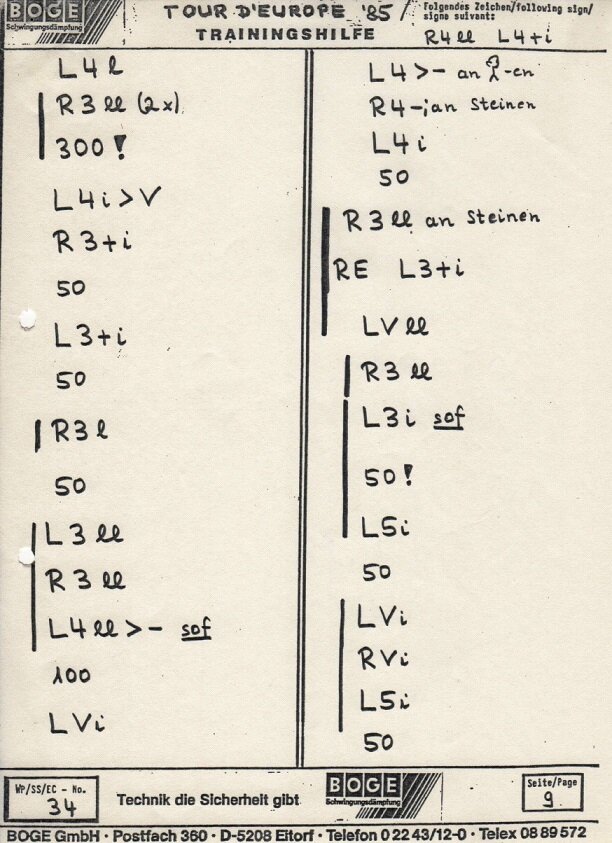 BOGE
Schwingungsdämpfung
TOUR D'EUROPE '85
TRAININGSHILFE
Folgendes Zeichen/following sign/
signe suivant:
R4ll L4+i
L4l
R3ll (2x)
300!
L4i>V
R3+i
50
L3+i
50
R3l
50
L3ll
R3ll
L4ll>- sof
100
LVi
L4>- an -en
R4-i an Steinen
L4i
50
R3ll an Steinen
RE L3+i
LVll
R3ll
L3i sof
50!
L5i
50
LVi
RVi
L5i
50
WP/SS/EC - No.
34
Technik die Sicherheit gibt
BOGE
Schwingungsdämpfung
Seite/Page
9
BOGE GmbH · Postfach 360 · D-5208 Eitorf · Telefon 0 22 43/12-0 · Telex 08 89 572